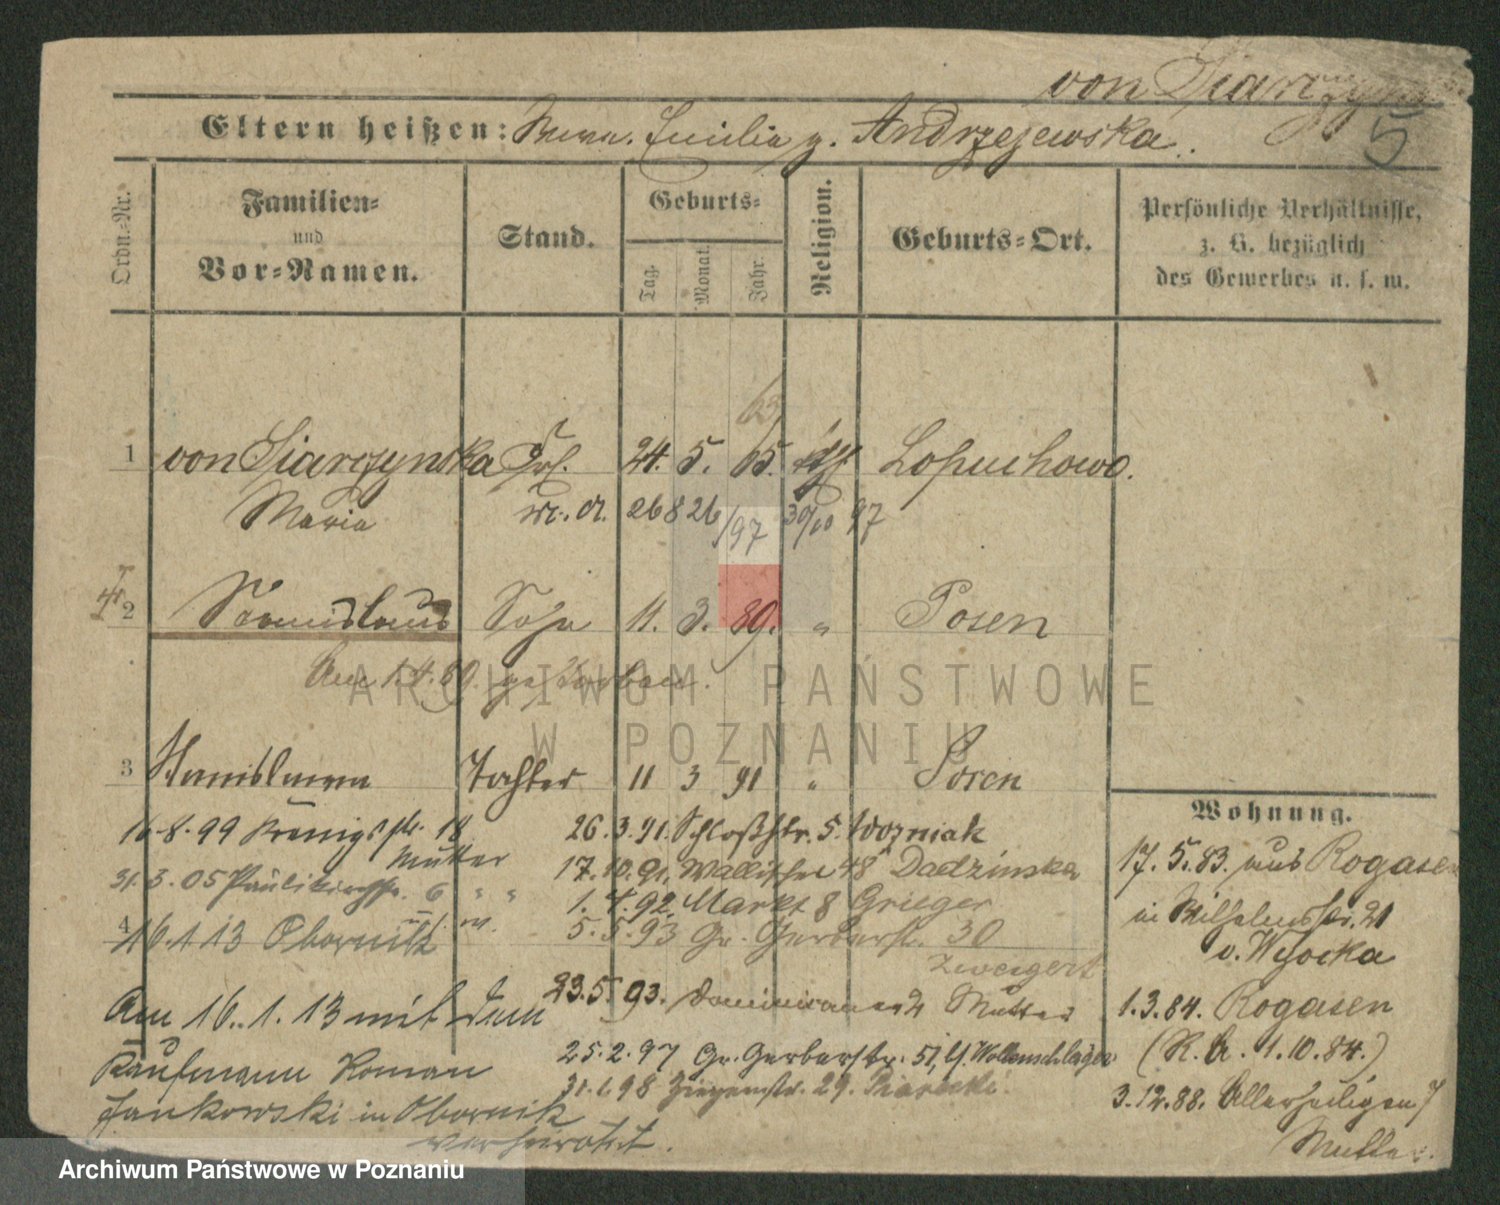 von Siarczynska
5
Eltern heißen: Emilia g. Andrzejewska.
Ordn.-Nr.
Familien-
und
Vor-Namen.
Stand.
Geburts-
Tag.
Monat.
Jahr.
Religion.
Geburts-Ort.
Persönliche Verhältnisse,
z. B. bezüglich
des Gewerbes u. s. w.
63
1 von Siarczynska 24. 5. 65. Lopuchowo.
Maria 26 8 26/97 30/10 97
2 Stanislaus Sohn 11. 3. 89. " Posen
Am 1.4.89. gestorben.
3 Stanislawa Tochter 11 3 91 " Posen
16.8.99 Königsstr. 18
Mutter
31.3.05 Paulikirchstr. 6 " "
4
16.1.13 Obornik
Am 16.1.13 mit dem
Kaufmann Roman
Jankowski in Obornik
verheiratet.
26.3.91. Schloßstr. 5. Wozniak
17.10.91. Wallischei 48 Dadzinska
1.4.92. Markt 8 Grieger
5.5.93 Gr. Gerberst. 30
Zweigert
23.5.93. Dominikaner 2 Mutter
25.2.97 Gr. Gerberstr. 51, Wollenschläger
31.1.98 Ziegenstr. 29.
Wohnung.
17.5.83. aus Rogasen
in Wilhelmsstr. 21
v. Wysocka
1.3.84. Rogasen
(R. A. 1.10.84.)
3.12.88. Allerheiligen 7
Mutter.
ARCHIWUM PAŃSTWOWE
W POZNANIU
Archiwum Państwowe w Poznaniu